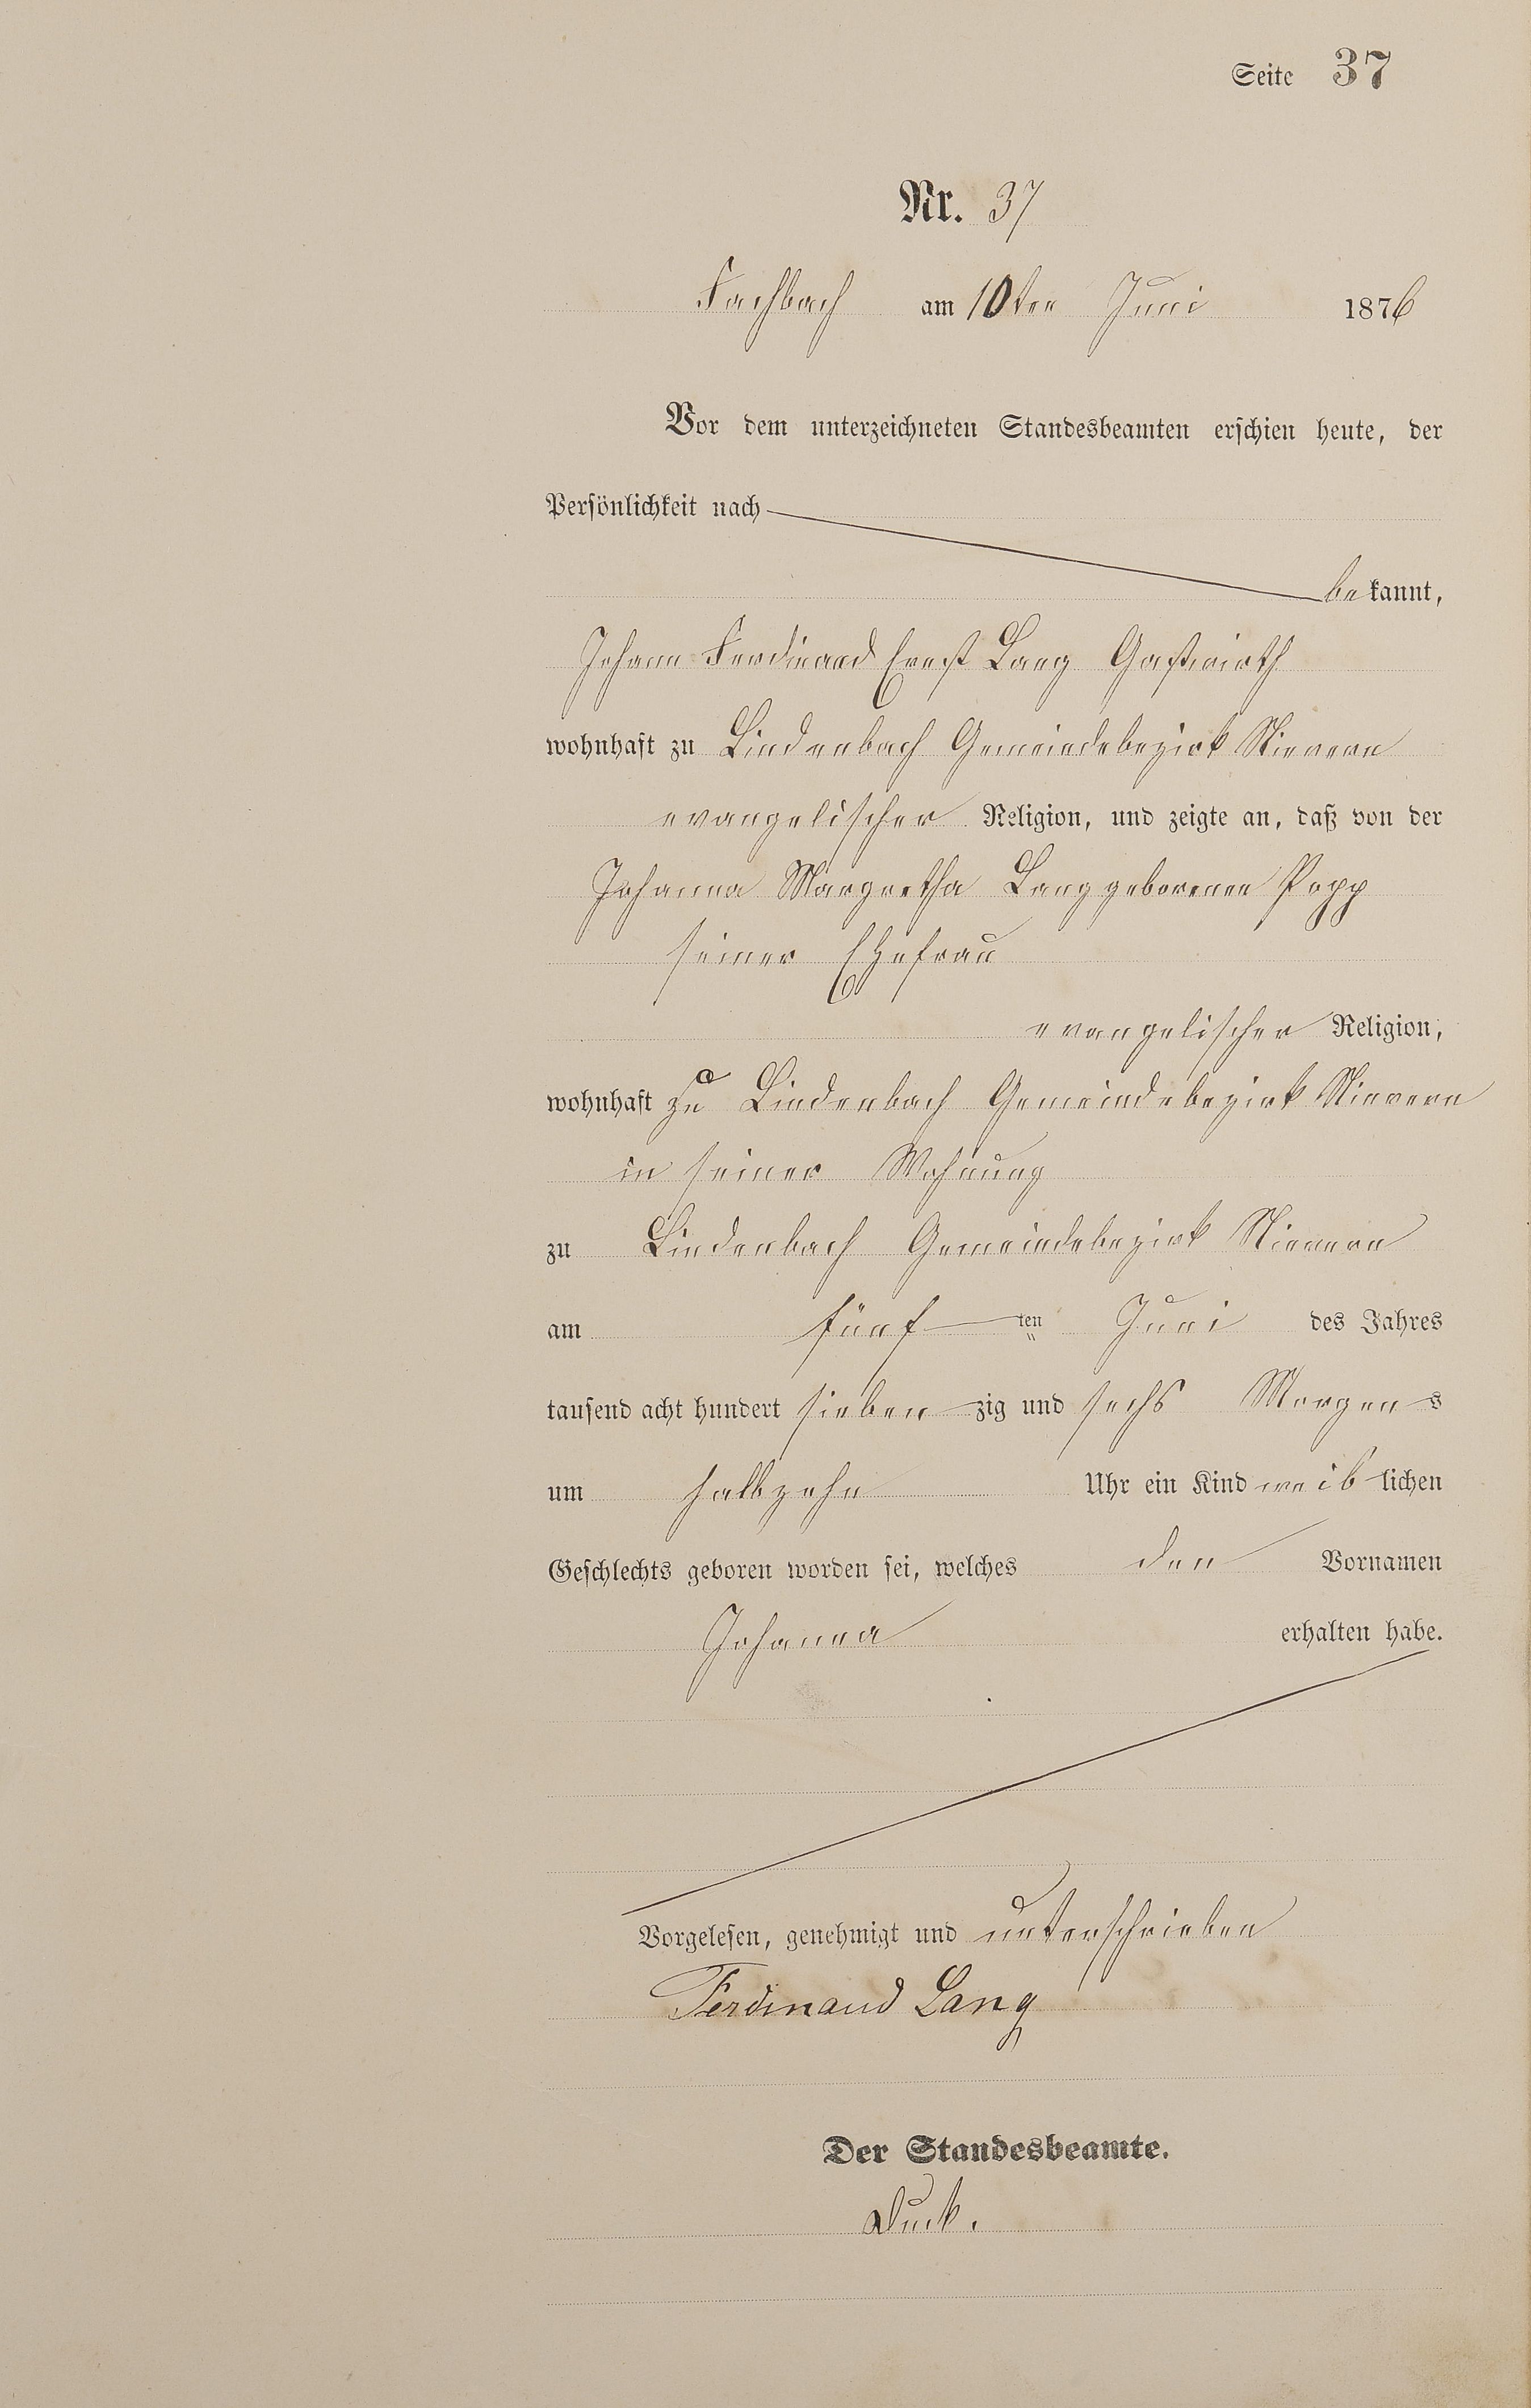 Seite 37
Nr. 37
Fachbach am 10ten Juni 1876
Vor dem unterzeichneten Standesbeamten erschien heute, der
Persönlichkeit nach
bekannt,
Johann Ferdinand Ernst Lang Gastwirth
wohnhaft zu Lindenbach Gemeindebezirk Nievern
evangelischer Religion, und zeigte an, daß von der
Johanna Margretha Lang geborenen Popp
seiner Ehefrau
evangelischer Religion,
wohnhaft zu Lindenbach Gemeindebezirk Nievern
in seiner Wohnung
zu Lindenbach Gemeindebezirk Nievern
am fünf ten Juni des Jahres
tausend acht hundert sieben zig und sechs Morgens
um halbzehn Uhr ein Kind weiblichen
Geschlechts geboren worden sei, welches den Vornamen
Johanna erhalten habe.
Vorgelesen, genehmigt und unterschrieben
Ferdinand Lang
Der Standesbeamte.